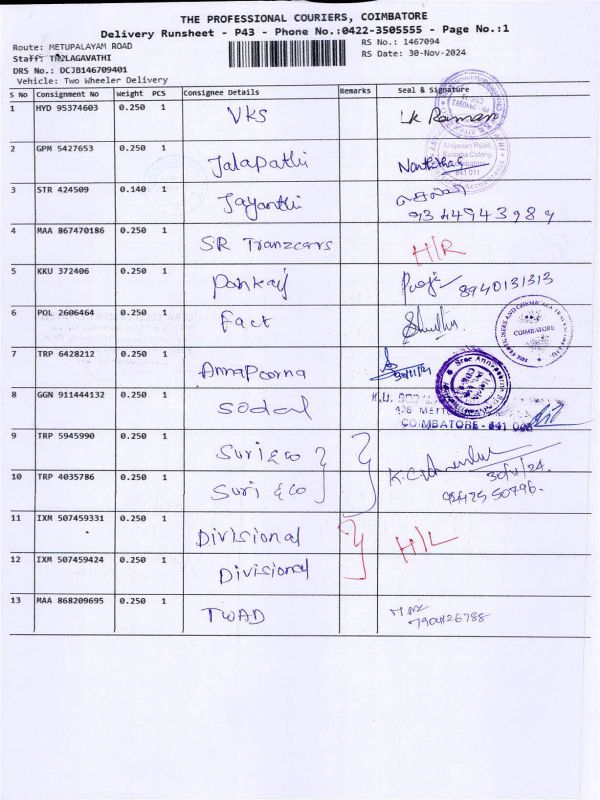 THE PROFESSIONAL COURIERS, COIMBATORE
Delivery Runsheet - P43 - Phone No.:0422-3505555 - Page No.:1
Route: METUPALAYAM ROAD
RS No.: 1467094
Staff: TH2LAGAVATHI
RS Date: 30-Nov-2024
DRS No.: DCJB146709401
Vehicle: Two Wheeler Delivery
S No Consignment No Weight PCS Consignee Details Remarks Seal & Signature
1 HYD 95374603 0.250 1 VKS LK Raman
2 GPM 5427653 0.250 1 Jalapathi
3 STR 424509 0.140 1 Jayanthi
9344943989
4 MAA 867470186 0.250 1 SR Tranzcars H/R
5 KKU 372406 0.250 1 Pankaj Pooja 8940131313
6 POL 2606464 0.250 1 Fact
COIMBATORE
7 TRP 6428212 0.250 1 Annapoorna 30/11/24
8 GGN 911444132 0.250 1 Sodal
COIMBATORE - 641 043
9 TRP 5945990 0.250 1 Suri & co 30/11/24.
10 TRP 4035786 0.250 1 Suri & co 94425 50796.
11 IXM 507459331 0.250 1 Divisional H/L
12 IXM 507459424 0.250 1 Divisional
13 MAA 868209695 0.250 1 TWAD
7904126788